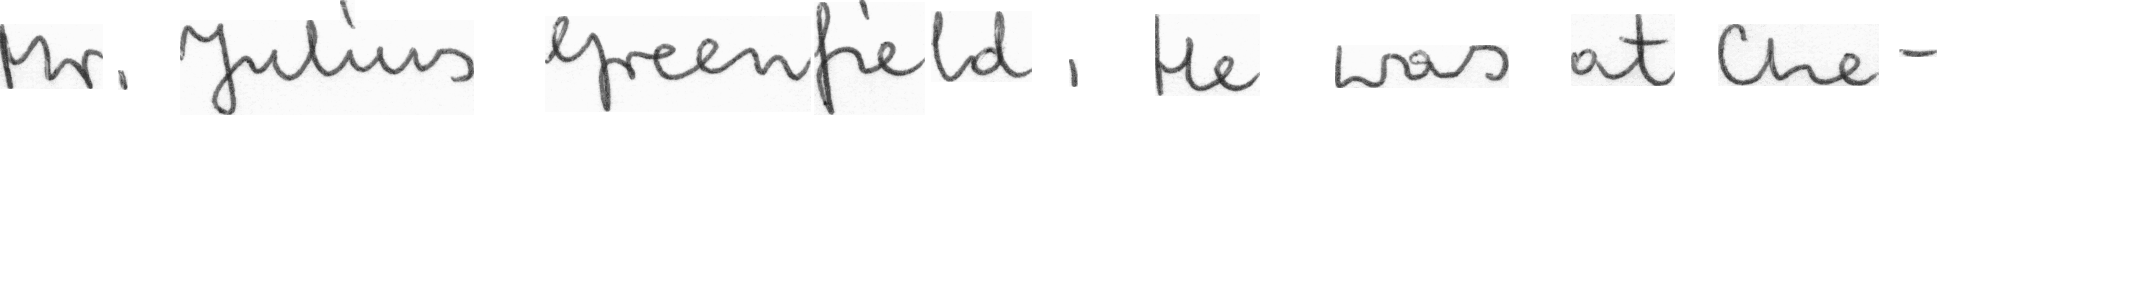 Mr. Julius Greenfield, He was at Che-